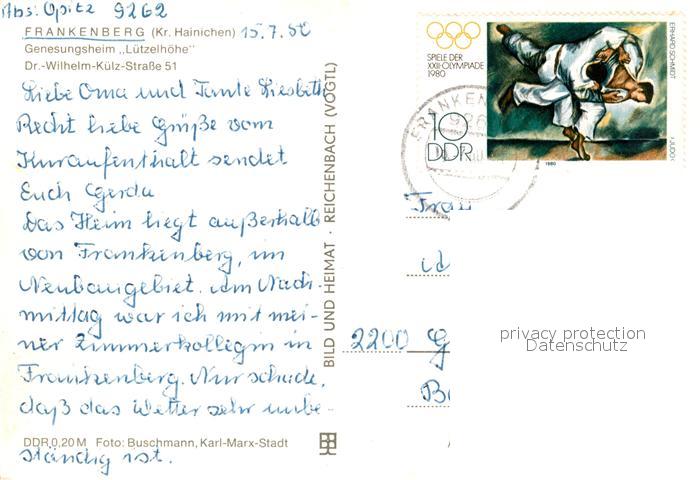 Abs: Opitz 9262
FRANKENBERG (Kr. Hainichen) 15.7.80
Genesungsheim „Lützelhöhe"
Dr.-Wilhelm-Külz-Straße 51
Liebe Oma und Tante Liesbeth
Recht liebe Grüße vom
Kuraufenthalt sendet
Euch Gerda
Das Heim liegt außerhalb
von Frankenberg, im
Neubaugebiet. Am Nach-
mittag war ich mit mei-
ner Zimmerkollegin in
Frankenberg. Nur schade,
daß das Wetter sehr unbe-
ständig ist.
DDR 0,20 M Foto: Buschmann, Karl-Marx-Stadt
BILD UND HEIMAT · REICHENBACH (VOGTL)
SPIELE DER
XXII. OLYMPIADE
1980
10
DDR
ERHARD SCHMIDT
JUDO
1980
FRANKEN
926
2200 G
privacy protection
Datenschutz